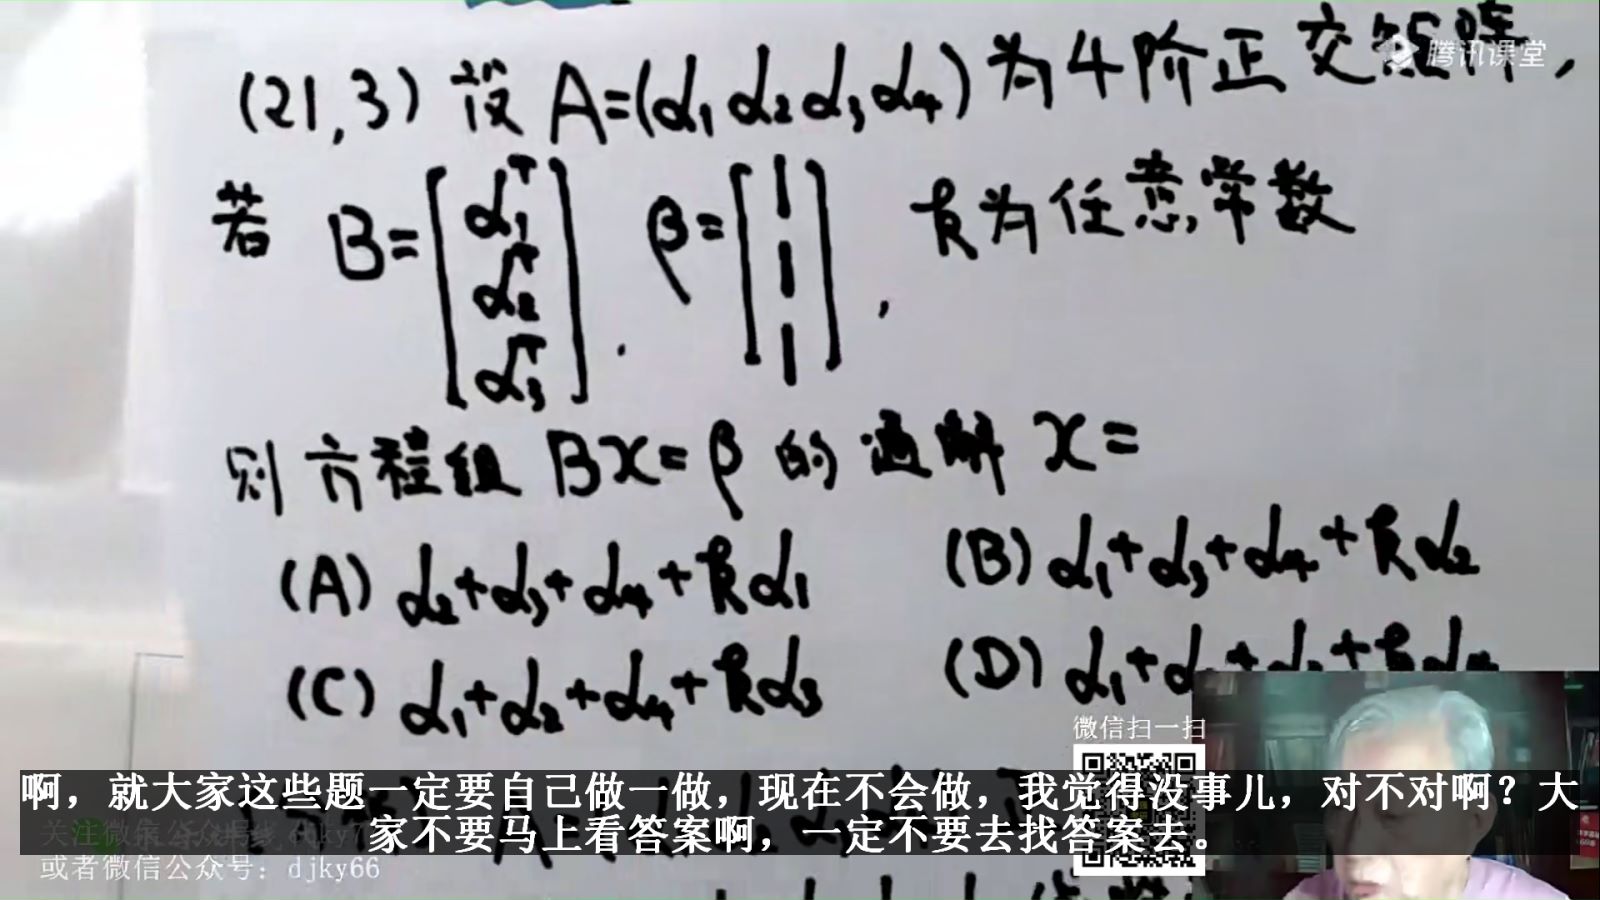 (21,3) 设 A=(α₁ α₂ α₃ α₄) 为4阶正交矩阵,
腾讯课堂
若 B=[α₁ᵀ α₂ᵀ α₃ᵀ]. β=[1 1 1], k为任意常数
则方程组 Bx=β 的通解 x=
(A) α₂+α₃+α₄+kα₁ (B) α₁+α₃+α₄+kα₂
(C) α₁+α₂+α₄+kα₃ (D) α₁+α
微信扫一扫
啊，就大家这些题一定要自己做一做，现在不会做，我觉得没事儿，对不对啊？大
家不要马上看答案啊，一定不要去找答案去。
关注微信公众号
或者微信公众号：djky66